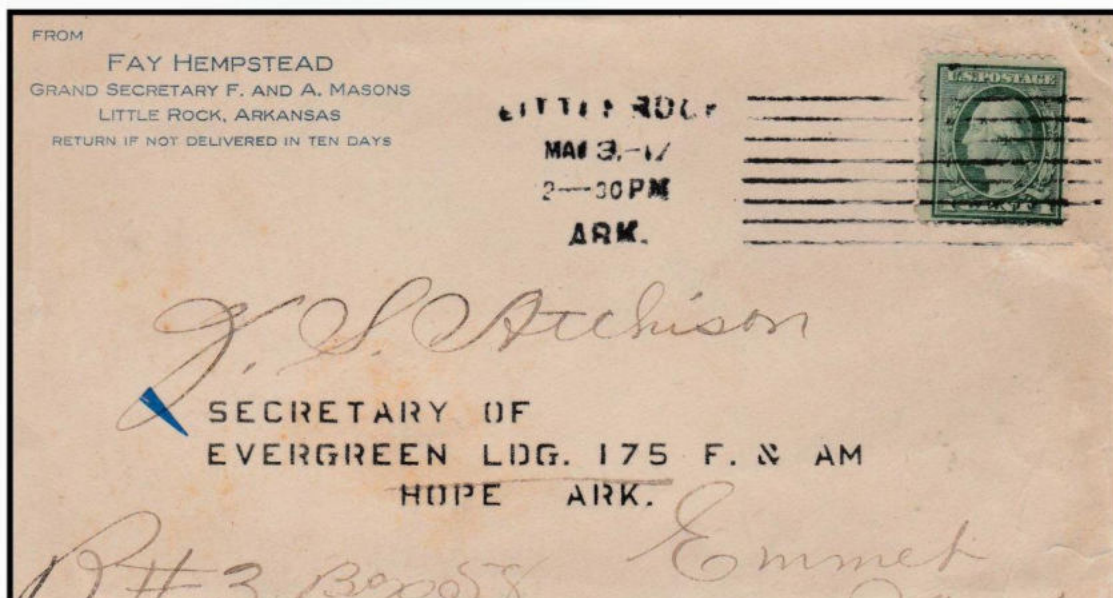 FROM
FAY HEMPSTEAD
GRAND SECRETARY F. AND A. MASONS
LITTLE ROCK, ARKANSAS
RETURN IF NOT DELIVERED IN TEN DAYS
LITTLE ROCK
2—30 PM
ARK.
U.S. POSTAGE
J. S. Atchison
SECRETARY OF
EVERGREEN LDG. 175 F. & AM
HOPE ARK.
Emmet
R#3 Box 58